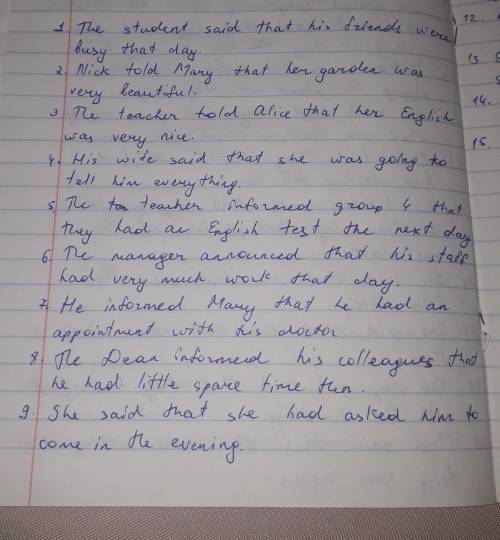 1. The student said that his friends were
busy that day.
2. Nick told Mary that her garden was
very beautiful.
3 The teacher told Alice that her English
was very nice.
4. His wife said that she was going to
tell him everything.
5. The teacher informed group 4 that
they had an English test the next day
6. The manager announced that his staff
had very much work that day.
7. He informed Mary that he had an
appointment with his doctor.
8. The Dean informed his colleagues that
he had little spare time then.
9. She said that she had asked him to
come in the evening.
12.
13
14.
15.